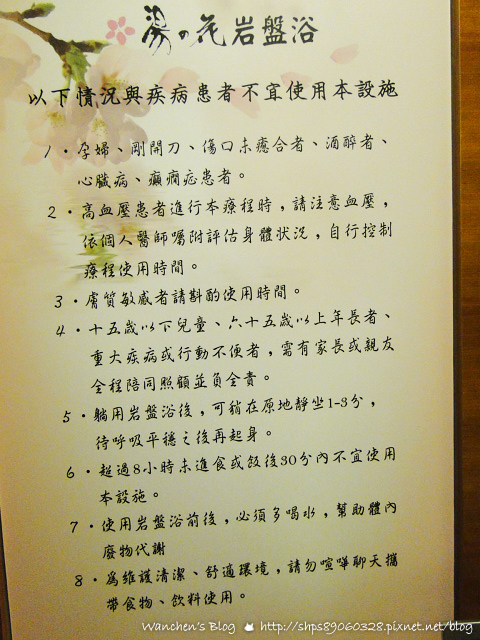 湯の花岩盤浴
以下情況與疾病患者不宜使用本設施
1・孕婦、剛開刀、傷口未癒合者、酒醉者、
心臟病、癲癇症患者。
2・高血壓患者進行本療程時，請注意血壓，
依個人醫師囑附評估身體狀況，自行控制
療程使用時間。
3・膚質敏感者請斟酌使用時間。
4・十五歲以下兒童、六十五歲以上年長者、
重大疾病或行動不便者，需有家長或親友
全程陪同照顧並負全責。
5・躺用岩盤浴後，可稍在原地靜坐1-3分，
待呼吸平穩之後再起身。
6・超過8小時未進食或飯後30分內不宜使用
本設施。
7・使用岩盤浴前後，必須多喝水，幫助體內
廢物代謝
8・為維護清潔、舒適環境，請勿喧嘩聊天攜
帶食物、飲料使用。
Wanchen's Blog http://shps89060328.pixnet.net/blog